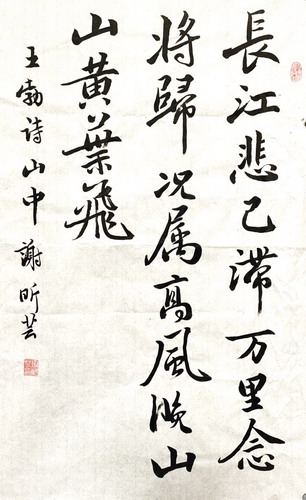 長江悲已滞万里念
將歸况属高風晚山
山黄葉飛
王勃诗山中謝昕芸